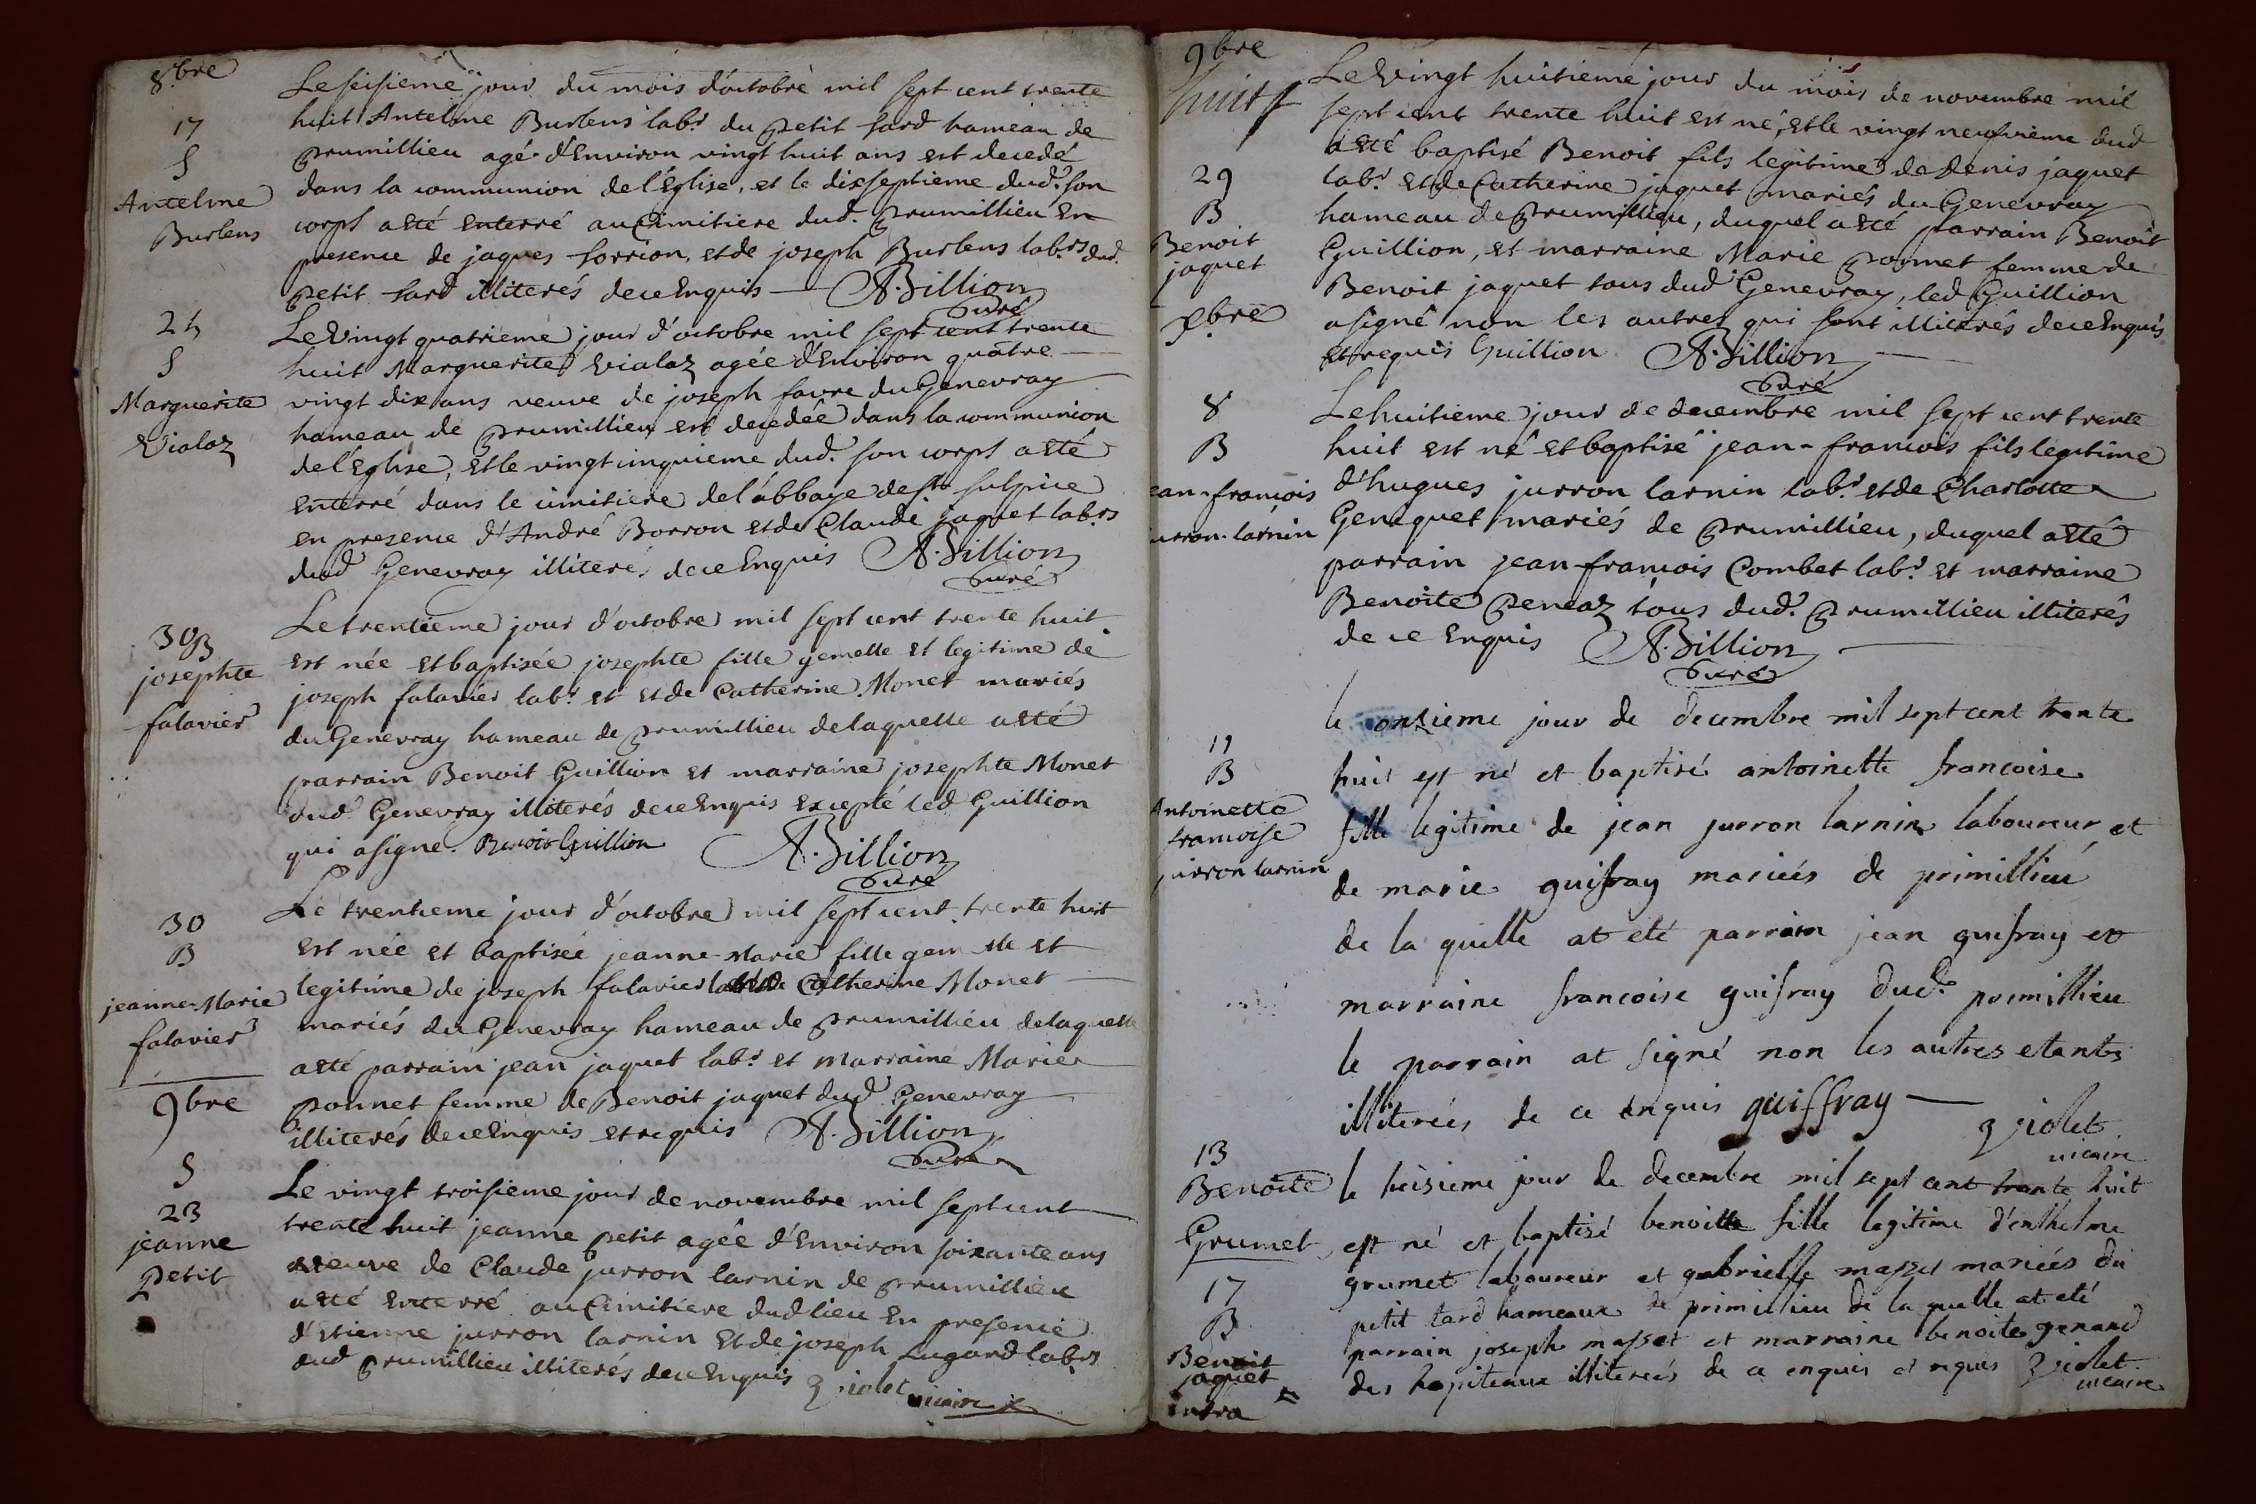 8.bre
17
S
Antelme
Burlens
Le seisieme jour du mois d'octobre mil sept cent trente
huit Antelme Burlens lab.r du petit tard hameau de
Prumillieu agé d'Environ vingt huit ans est decedé
dans la communion de l'Eglise, et le dixseptieme dud. son
corps a eté enterré au Cimitiere dud. Prumillieu En
presence de jaques sorrion, et de joseph Burlens lab.rs dud.
petit tard illiterés de ce Enquis — A. Billion
Curé
24
S
Marguerite
Vialaz
Le Vingt quatrieme jour d'octobre mil sept cent trente
huit Marguerite Vialaz agée d'Environ quatre
vingt dix ans veuve de joseph favre du Genevray
hameau de Prumillieu est decedée dans la communion
de l'Eglise, et le vingt cinquieme dud. son corps a eté
enterré dans le cimitiere de l'abbaye de st. sulpice
en presence d'André Borron et de Claude jaquet lab.rs
dud Genevray illiterés de ce Enquis A. Billion
Curé
30 B
josephte
falavier
Le trentieme jour d'octobre mil sept cent trente huit
est née et baptisée josephte fille gemelle et legitime de
joseph falavier lab.r et et de Catherine Monet mariés
du Genevray hameau de Prumillieu de laquelle a eté
parrain Benoit Guillion et marraine josephte Monet
dud Genevray illiterés de ce Enquis excepté led Guillion
qui a signé. Benoit Guillion A. Billion
Curé
30
B
jeanne-Marie
falavier
Le trentieme jour d'octobre mil sept cent trente huit
est née et baptisée jeanne-Marie fille gemelle et
legitime de joseph falavier lab.r et de Catherine Monet
mariés du Genevray hameau de Prumillieu de laquelle
a eté parrain jean jaquet lab.r et marraine Marie
Ponnet femme de Benoit jaquet dud Genevray
illiterés de ce Enquis et requis A. Billion
Curé
9bre
S
23
jeanne
Petit
Le vingt troisieme jour de novembre mil sept cent
trente huit jeanne petit agée d'Environ soixante ans
veuve de Claude jurron larnin de Prumillieu
a eté enterré au Cimitiere dud lieu En presence
d'Etienne jurron larnin et de joseph Lugand lab.rs
dud Prumillieu illiterés de ce Enquis Violet vicaire
9bre
huit
29
B
Benoit
jaquet
Le Vingt huitieme jour du mois de novembre mil
sept cent trente huit est né, et le vingt neufvieme dud
a eté baptisé Benoit fils legitime de Denis jaquet
lab.r et de Catherine jaquet mariés du Genevray
hameau de Prumillieu, duquel a eté parrain Benoit
Guillion, et marraine Marie Ponnet femme de
Benoit jaquet tous dud Genevray, led Guillion
a signé non les autres qui sont illiterés de ce Enquis
et requis Guillion A. Billion
Curé
Xbre
8
B
jean-francois
jurron-larnin
Le huitieme jour de decembre mil sept cent trente
huit est né et baptisé jean-francois fils legitime
d'hugues jurron larnin lab.r et de Charlotte
Genequet mariés de Prumillieu, duquel a eté
parrain jean-francois Combet lab.r et marraine
Benoite Peneaz tous dud. Prumillieu illiterés
de ce Enquis A. Billion
Curé
11
B
Antoinette
francoise
jurron larnin
le onzieme jour de decembre mil sept cent trante
huit est né et baptisé antoinette francoise
fille legitime de jean jurron larnin laboureur et
de marie guifray mariés de primillieu
de la quille at eté parrain jean guifray et
marraine francoise guifray dud. primillieu
le parrain at signé non les autres etants
illiterés de ce enquis guiffray — Violet
vicaire
13
Benoite
Grumet
le treisieme jour de decembre mil sept cent trante huit
est né et baptisé benoitte fille legitime d'enthelme
grumet laboureur et gabrielle masset mariés du
petit tard hameaux de primillieu de la quille at eté
parrain joseph masset et marraine benoite genand
des hopiteaux illiterés de ce enquis et requis Violet
vicaire
17
B
Benoit
jaquet
intra